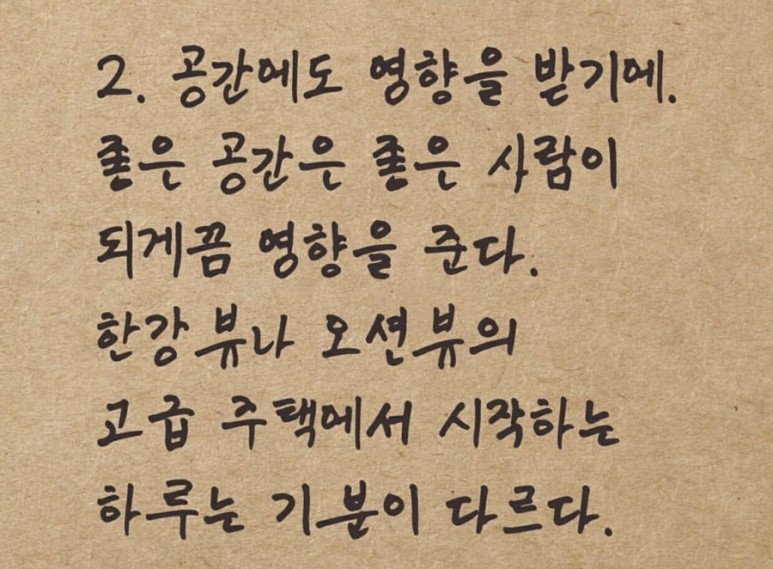 2. 공간에도 영향을 받기에.
좋은 공간은 좋은 사람이
되게끔 영향을 준다.
한강뷰나 오션뷰의
고급 주택에서 시작하는
하루는 기분이 다르다.